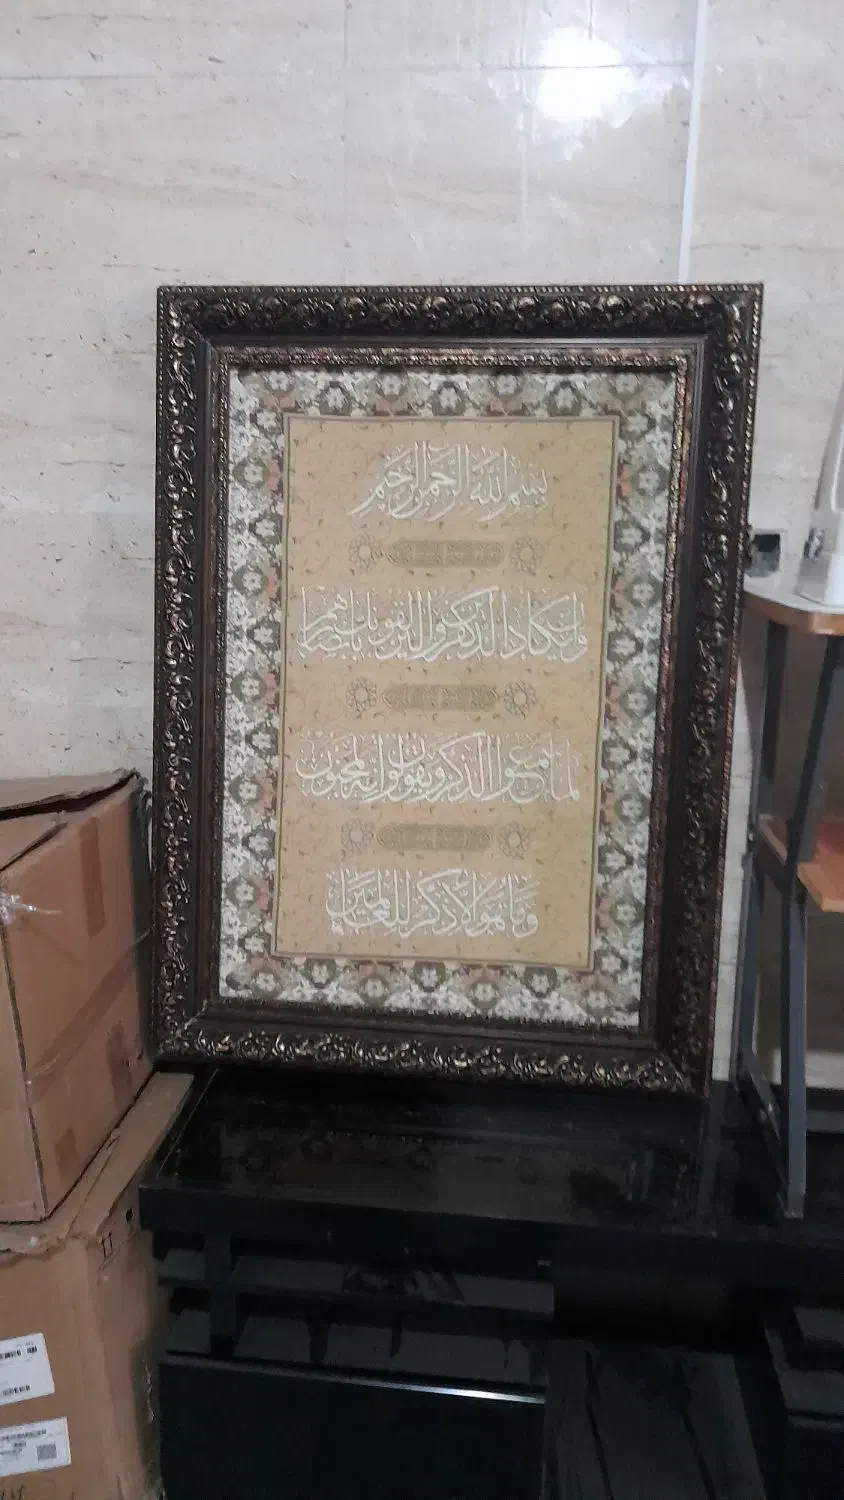 بِسْمِ اللَّهِ الرَّحْمَنِ الرَّحِيمِ
وَإِن يَكَادُ الَّذِينَ كَفَرُوا لَيُزْلِقُونَكَ بِأَبْصَارِهِمْ
لَمَّا سَمِعُوا الذِّكْرَ وَيَقُولُونَ إِنَّهُ لَمَجْنُونٌ
وَمَا هُوَ إِلَّا ذِكْرٌ لِلْعَالَمِينَ